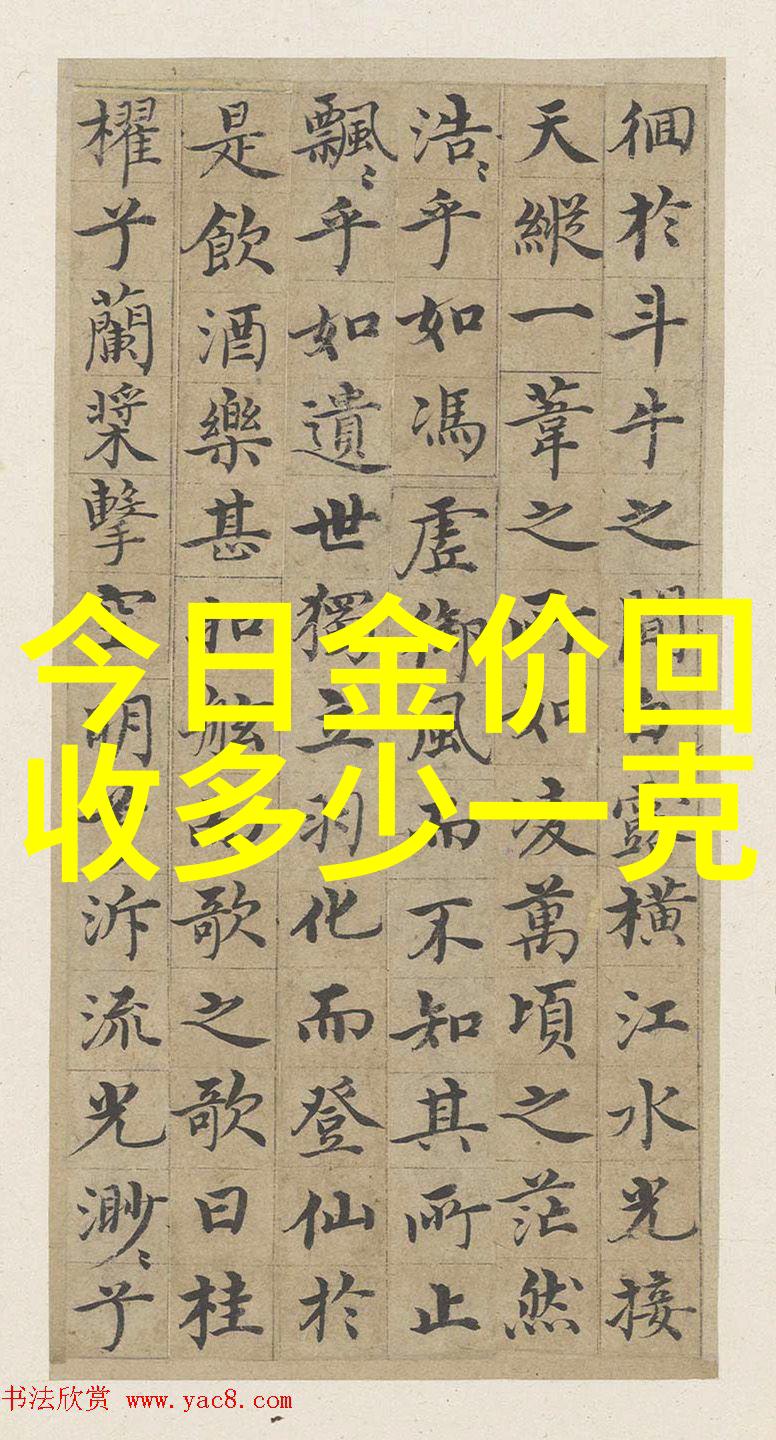 徊於斗牛之間白露橫江水光接
天縱一葦之所如凌萬頃之茫然
浩〻乎如馮虛御風而不知其所止
飄〻乎如遺世獨立羽化而登仙於
是飲酒樂甚扣舷而歌之歌曰桂
櫂兮蘭槳擊空明兮泝流光渺〻兮
今日金价回
收多少一克
书法欣赏 www.yac8.com